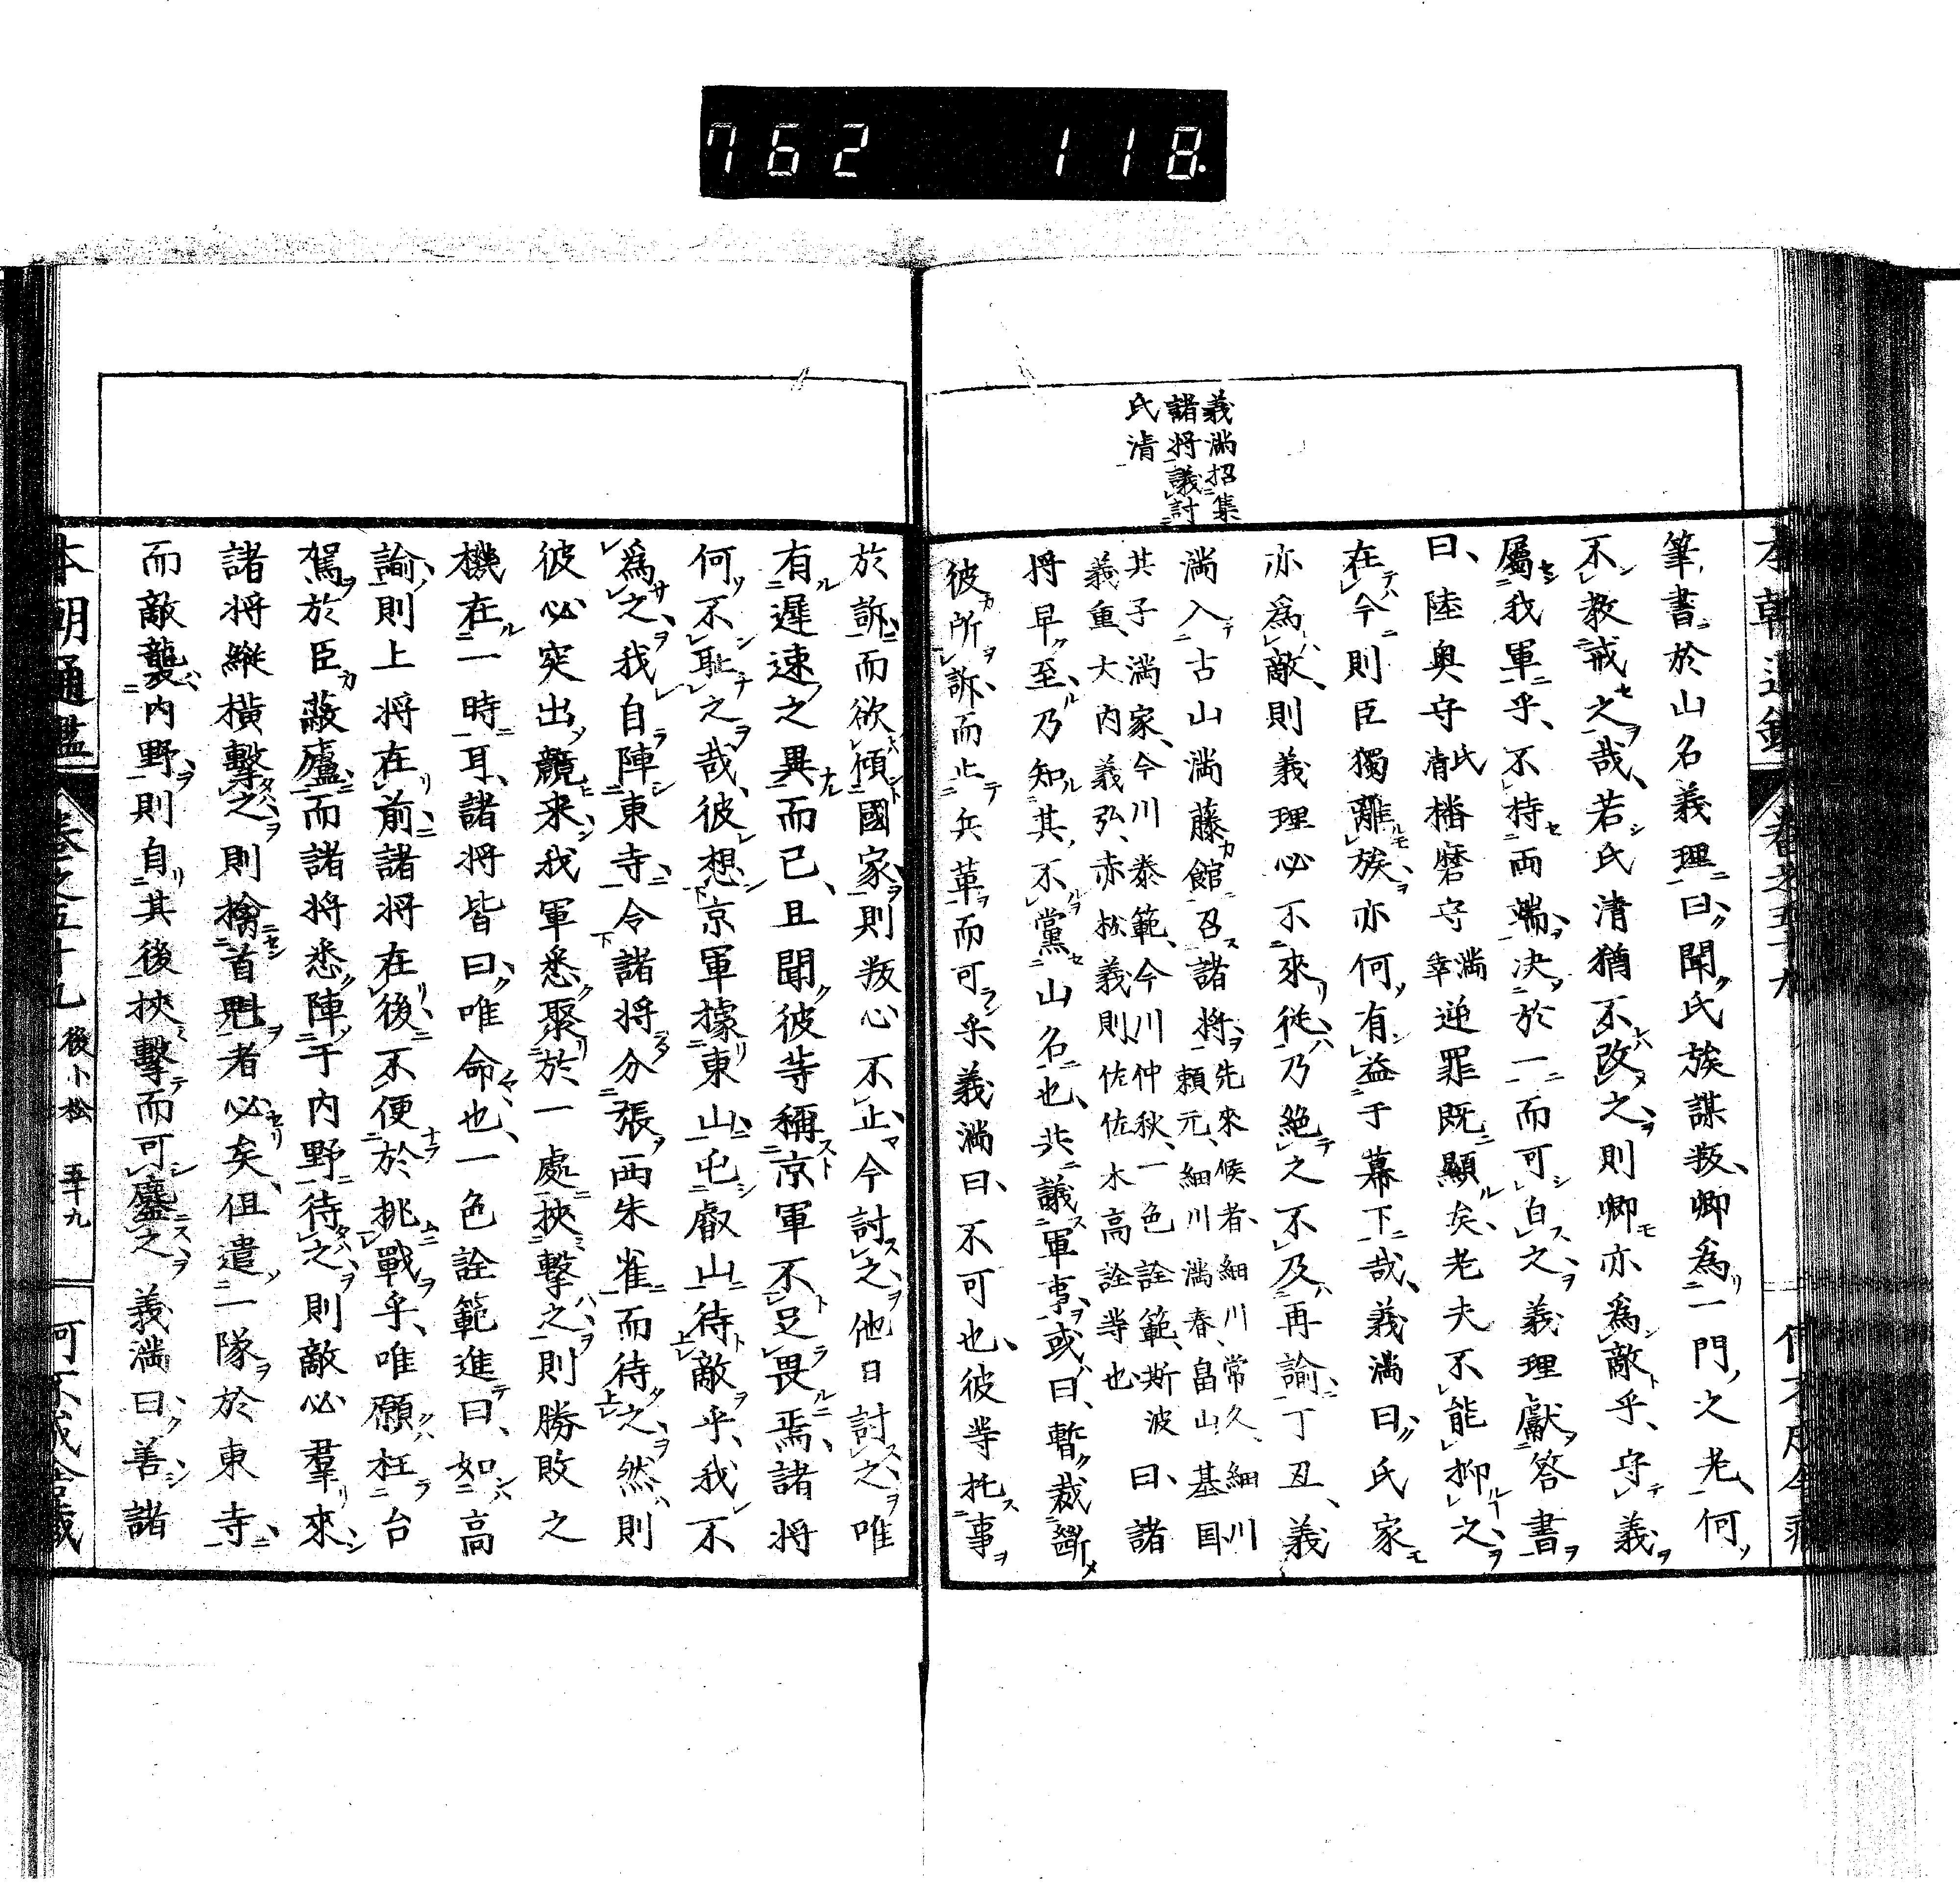 762 118
義滿招集
諸将議討
氏清
筆書於山名義理曰聞氏族謀叛卿爲一門之老何
不教戒之哉若氏清猶不改之則卿亦爲敵乎守義
屬我軍乎不持兩端决於一而可白之義理獻答書
曰陸奥守氏清播磨守滿幸逆罪既顯矣老夫不能抑之
在今則臣獨離族亦何有益于幕下哉義滿曰氏家
亦爲敵則義理必不來從乃絶之不及再諭丁丑義
滿入古山滿藤館召諸将先來候者細川常久細川
頼元細川滿春畠山基国
其子滿家今川泰範今川仲秋一色詮範斯波
義重大内義弘赤松義則佐佐木高詮等也曰諸
将早至乃知其不黨山名也共議軍事或曰暫裁斷
彼所訴而止兵革而可乎義滿曰不可也彼等托事
於訴而欲傾國家則叛心不止今討之他日討之唯
有遲速之異而已且聞彼等稱京軍不足畏焉諸将
何不耻之哉彼想京軍據東山屯叡山待敵乎我不
爲之我自陣東寺令諸将分張西朱雀而待之然則
彼必突出競来我軍悉聚於一處挾擊之則勝敗之
機在一時耳諸将皆曰唯命也一色詮範進曰如高
諭則上将在前諸将在後不便於挑戰乎唯願枉台
駕於臣蔽廬而諸将悉陣于内野待之則敵必羣來
諸将縱橫擊之則擒首魁者必矣但遣一隊於東寺
而敵襲内野則自其後挾擊而可鏖之義滿曰善諸
本朝通鑑 卷之五十九 後小松 五十九